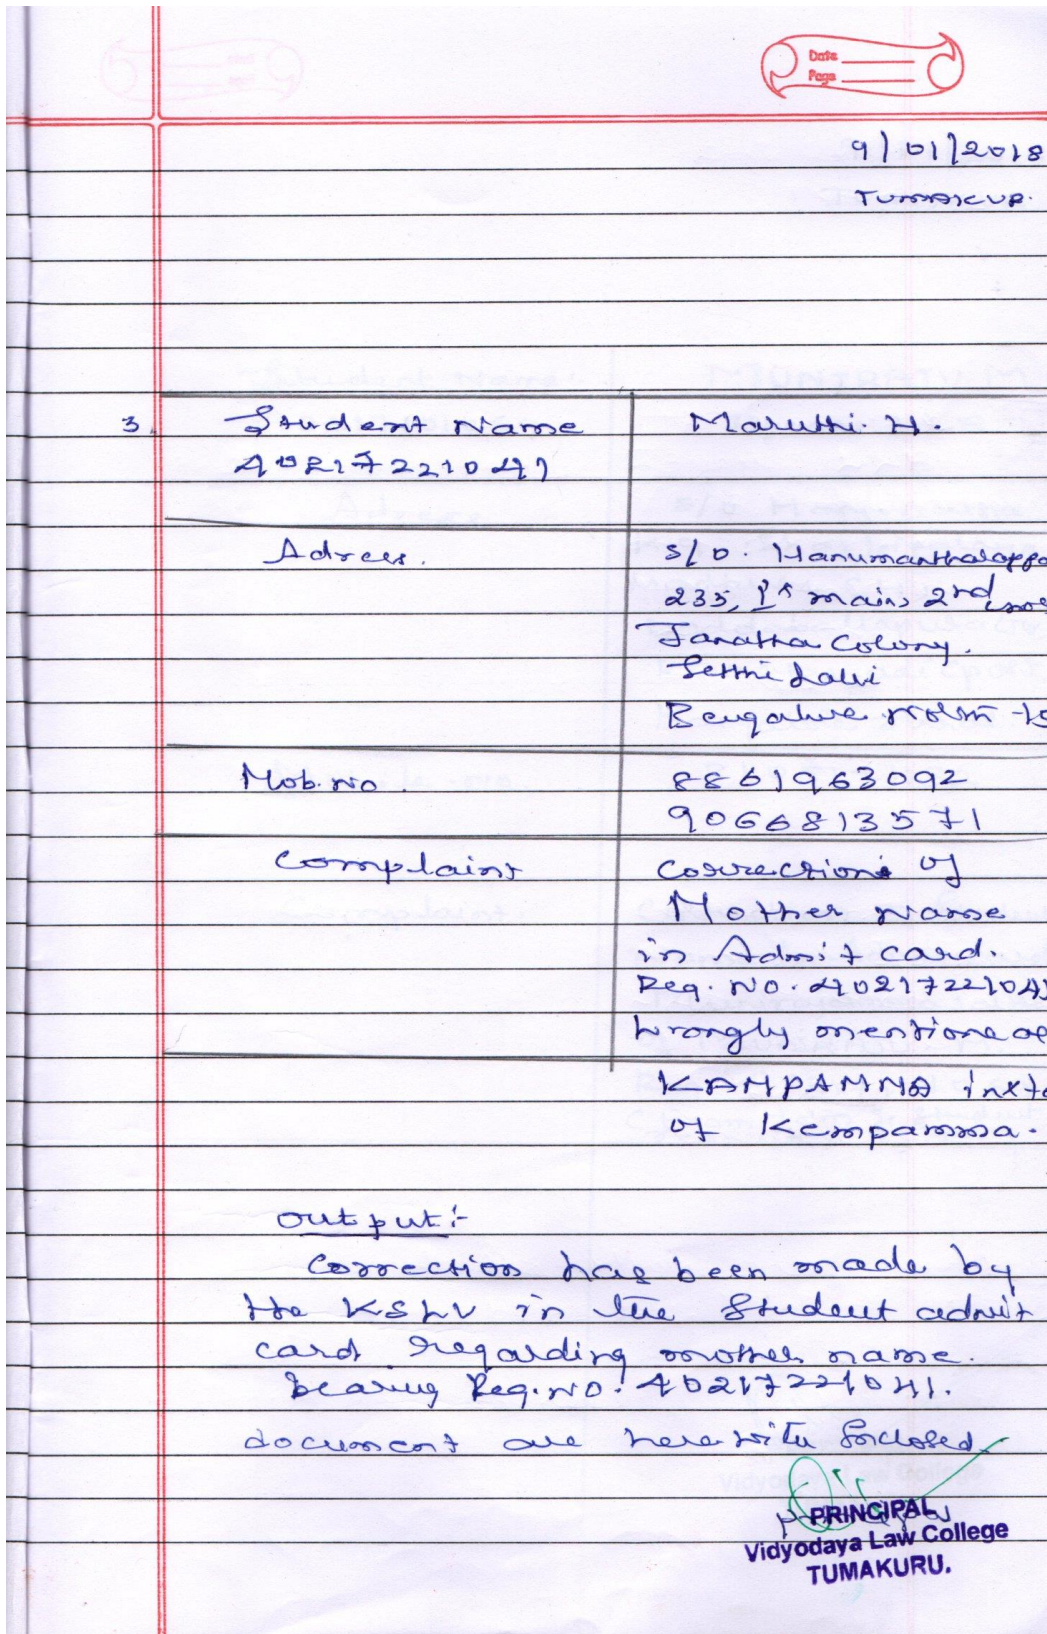 Date
Page
9/01/2018
TUMAKUR.
3. Student Name Maruthi. H.
40217221041
Adrees. S/o. Hanumanthalappa
235, 1st main, 2nd cross
Janatha Colony.
Setthi halli
Bengalure North -15
Mob. No. 8861963092
9066813571
Complaint Correction of
Mother Name
in Admit card.
Reg. No. 40217221041
wrongly mentione as
KAMPAMMA inste
of Kempamma.
output:-
Correction has been made by
the KSLU in the Student admit
card regarding mother name.
bearing Reg. No: 40217221041.
document are herewith Enclosed.
PRINCIPAL
Vidyodaya Law College
TUMAKURU.